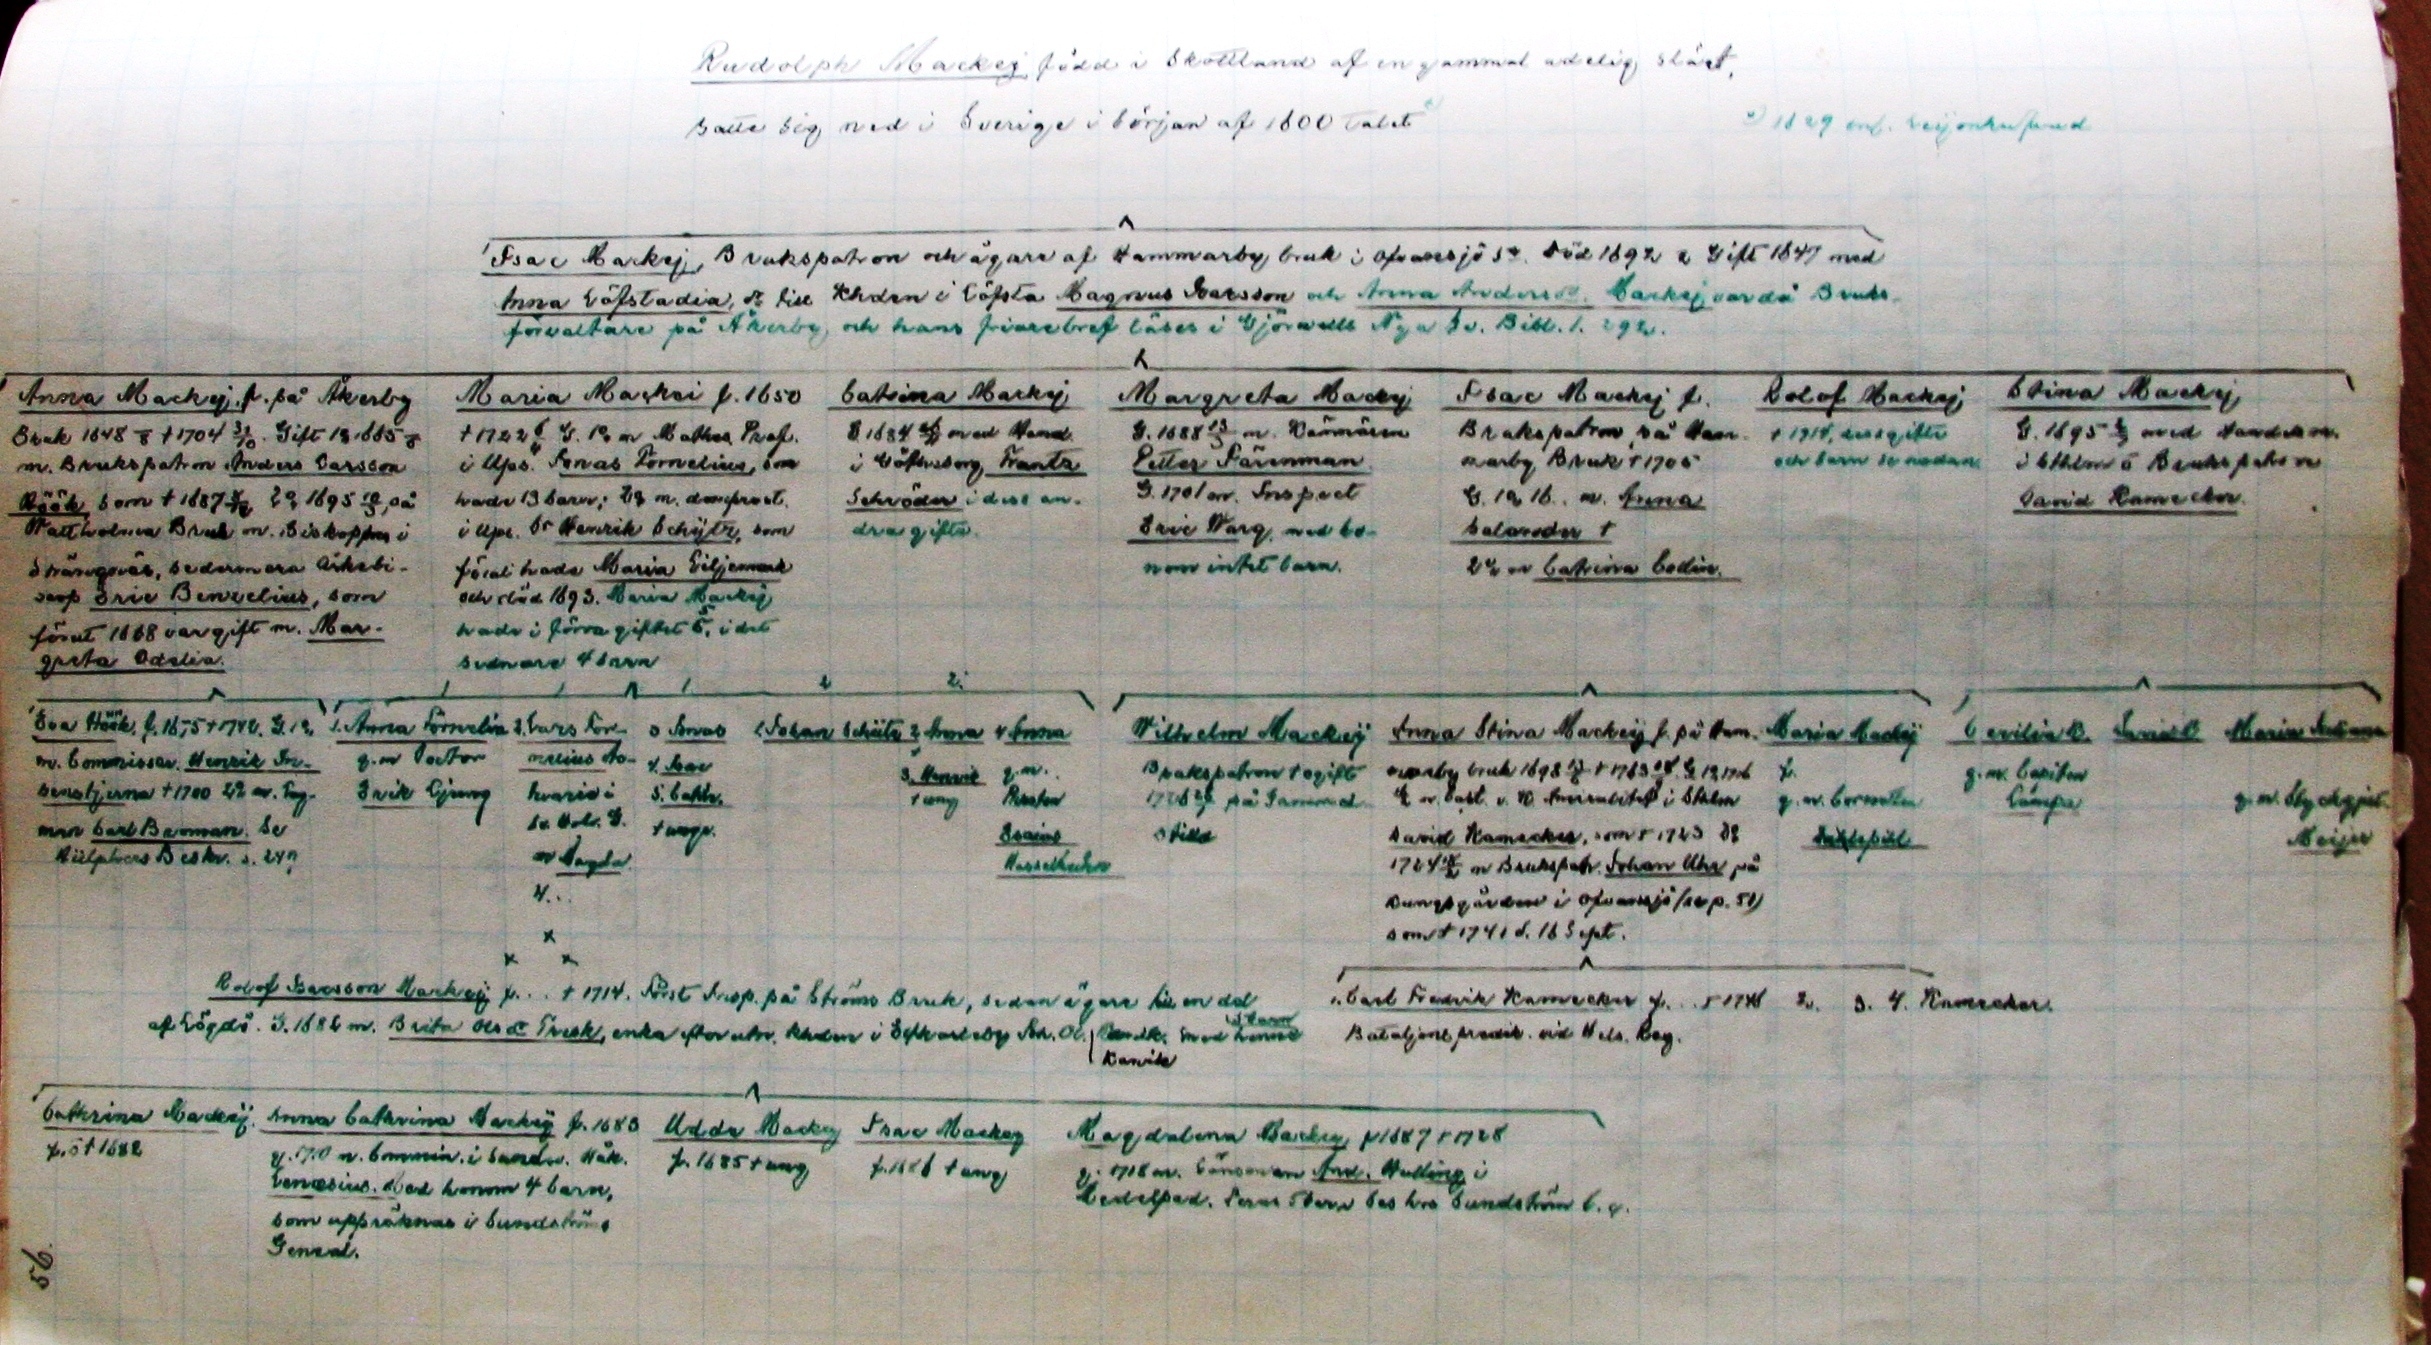 Rudolph Mackej född i Skottland af en gammal adelig släct,
satte sig ned i Sverige i början af 1600 talet
1629 enl. Leijonhufvud
Isac Mackej, Brukspatron och ägare af Hammarby bruk i Ofvansjö Sn. Död 1692 Gift 1647 med
Anna Löfstadia, dr till Khden i Löfsta Magnus Isacsson och Anna Andersdr. Mackej var då Bruks-
förvaltare på Åkerby och hans friarebref läses i Gjörwells Nya Sv. Bibl. 1. 292.
Anna Mackej. f. på Åkerby
Bruk 1648 †1704 31/10. Gift 1º 1665
m. Brukspatron Anders Larsson
Höök som †1687 2º 1695 på
Wattholma Bruk m. Biskoppen i
Strängnäs, sedermera Ärkebi-
scop Eric Benzelius, som
förut 1668 var gift m. Mar-
greta Odelia.
Maria Mackei f. 1650
†1722 G. 1º m Mathes. Prof.
i Ups. Jonas Fornelius, som
hade 13 barn; 2º m. domprost.
i Ups. Dr Henrik Schütz, som
förut hade Maria Liljemark
och död 1693. Maria Mackej
hade i förra giftet 5, i det
sednare 4 barn
Catrina Mackej
G. 1684 med Hand.
i Götheborg, Frantz
Schröder i dess an-
dra gifte.
Margreta Mackej
G. 1688 13/3 m. Kämnären
Petter Färnman
G. 1701 m. Inspect
Eric Warg, med ho-
nom intet barn.
Isac Mackej f.
Brukspatron på Ham-
marby Bruk †1705
G. 1º 16.. m. Anna
Salander †
2º m Catrina Bodin.
Rolof Mackej
† 1714, dess gifte
och barn se nedan.
Stina Mackej
G. 1695 med Handelsm.
i Sthlm o Brukspatron
David Kamecker.
Eva Höök. f. 16.5 †1742. G. 1º
m. Commissar. Henrik In-
senstjerna †1700 2º m. Lag-
man Carl Broman. Se
Hülphers Beskr. s. 247
1. Anna Fornelia
g. m Doctor
Erik Ljung
2. Lars For-
nelius As-
hvarid i
Sv. Hol. G.
m Magda.
4...
3 Jonas
4. Isac
5. Cathr.
† unge.
1. Johan Schütz
2 Anna
3. Henrik
† ung
4 Anna
g. m.
Prosten
Esaias
Hasselhuhn
Wilhelm Mackeij
Brukspatron † ogift
på Gammel-
stilla
Anna Stina Mackeij f. på Ham-
marby bruk 1698 †1763 G. 1º 1716
m. Past. v. K. Amiralitet i Sthlm
David Kamecker, som † 1723 2º
1724 m Brukspatr. Johan Uhr på
Kungsgården i Ofvansjö (se p. 51)
som † 1741 d. 16 Sept.
Maria Mackeij
f.
g. m. Cornetten
Cecilia K.
g. m. Capiten
Lampa
David K
Maria Juliana
g. m. Styckgjut.
Meijer
Rolof Isacsson Mackeij f... † 1714. Först Insp. på Ströms Bruk, sedan ägare till en del
af Lögdö. G. 1682 m. Brita Olsdr Tresk, enka efter utn. Khden i Elfkarleby Joh. Ol. med henne
5 barn
Kanik
1. Carl Fredrik Kamecker f... † 1746 2. 3. 4. Kamecker.
Bataljons predik. vid Hels. Reg.
Cathrina Mackeij.
f. o † 1682
Anna Cathrina Mackeij f. 1683
g. 17.0 m. Commin. i Sundsv. Håk.
Lenæsius. Med honom 4 barn,
som uppräknas i Sundströms
Geneal.
Udde Mackeij
f. 1685 † ung
Isac Mackeij
f. 1686 † ung
Magdalena Mackeij f 1687 † 1728
g. 1718 m. Länsman And. Hulling i
Medelpad. Deras 5 barn ses hos Sundström l. c.